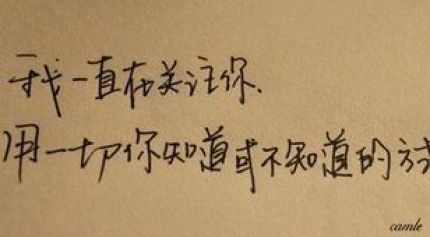 我一直在关注你.
用一切你知道或不知道的方式
camle